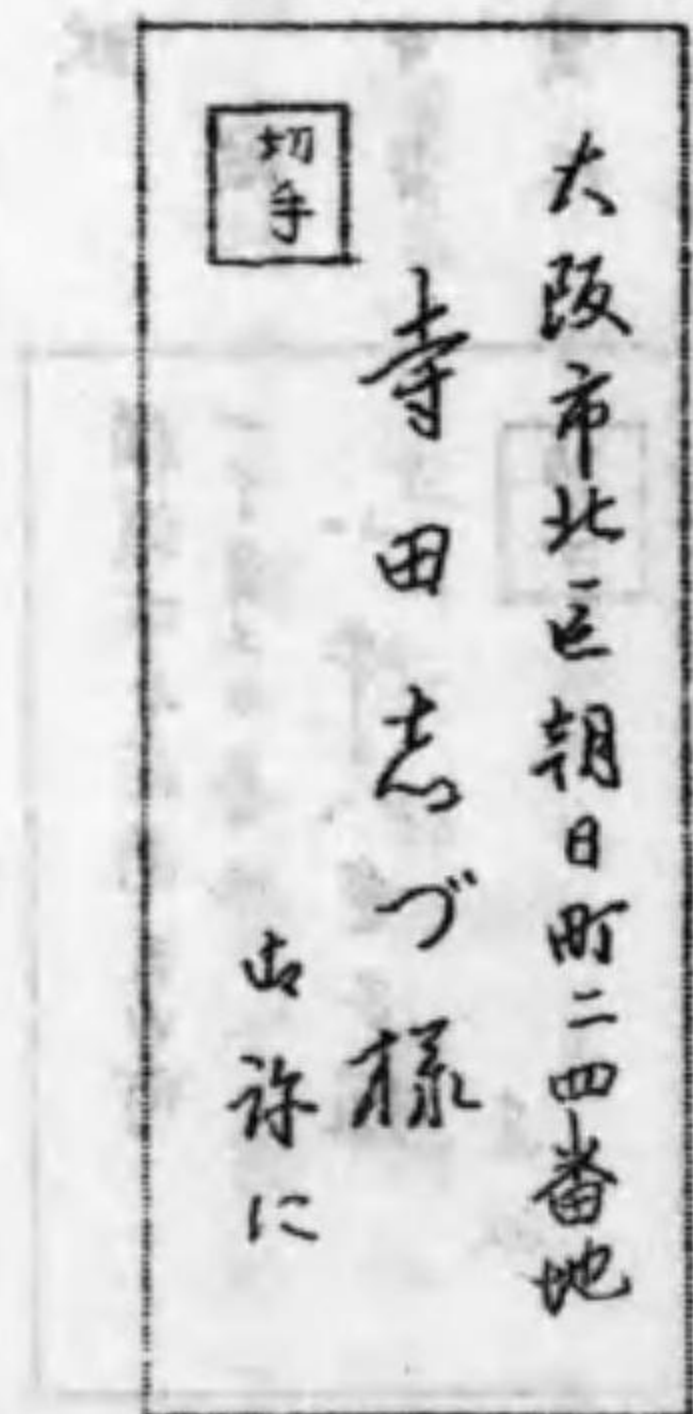 大阪市北区朝日町二四番地
寺田志づ様
み許に
切手